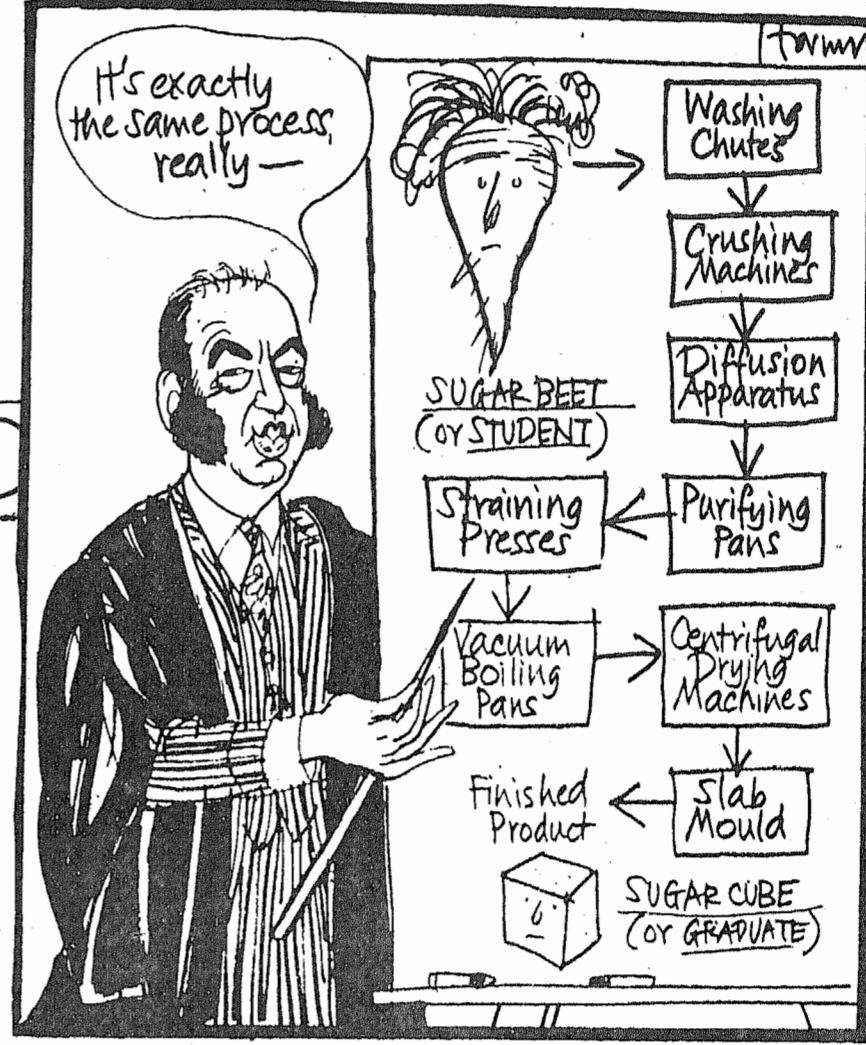 It's exactly
the same process,
really —
Washing
Chutes
Crushing
Machines
SUGAR BEET
(or STUDENT)
Diffusion
Apparatus
Purifying
Pans
Straining
Presses
Vacuum
Boiling
Pans
Centrifugal
Drying
Machines
Slab
Mould
Finished
Product
SUGAR CUBE
(or GRADUATE)